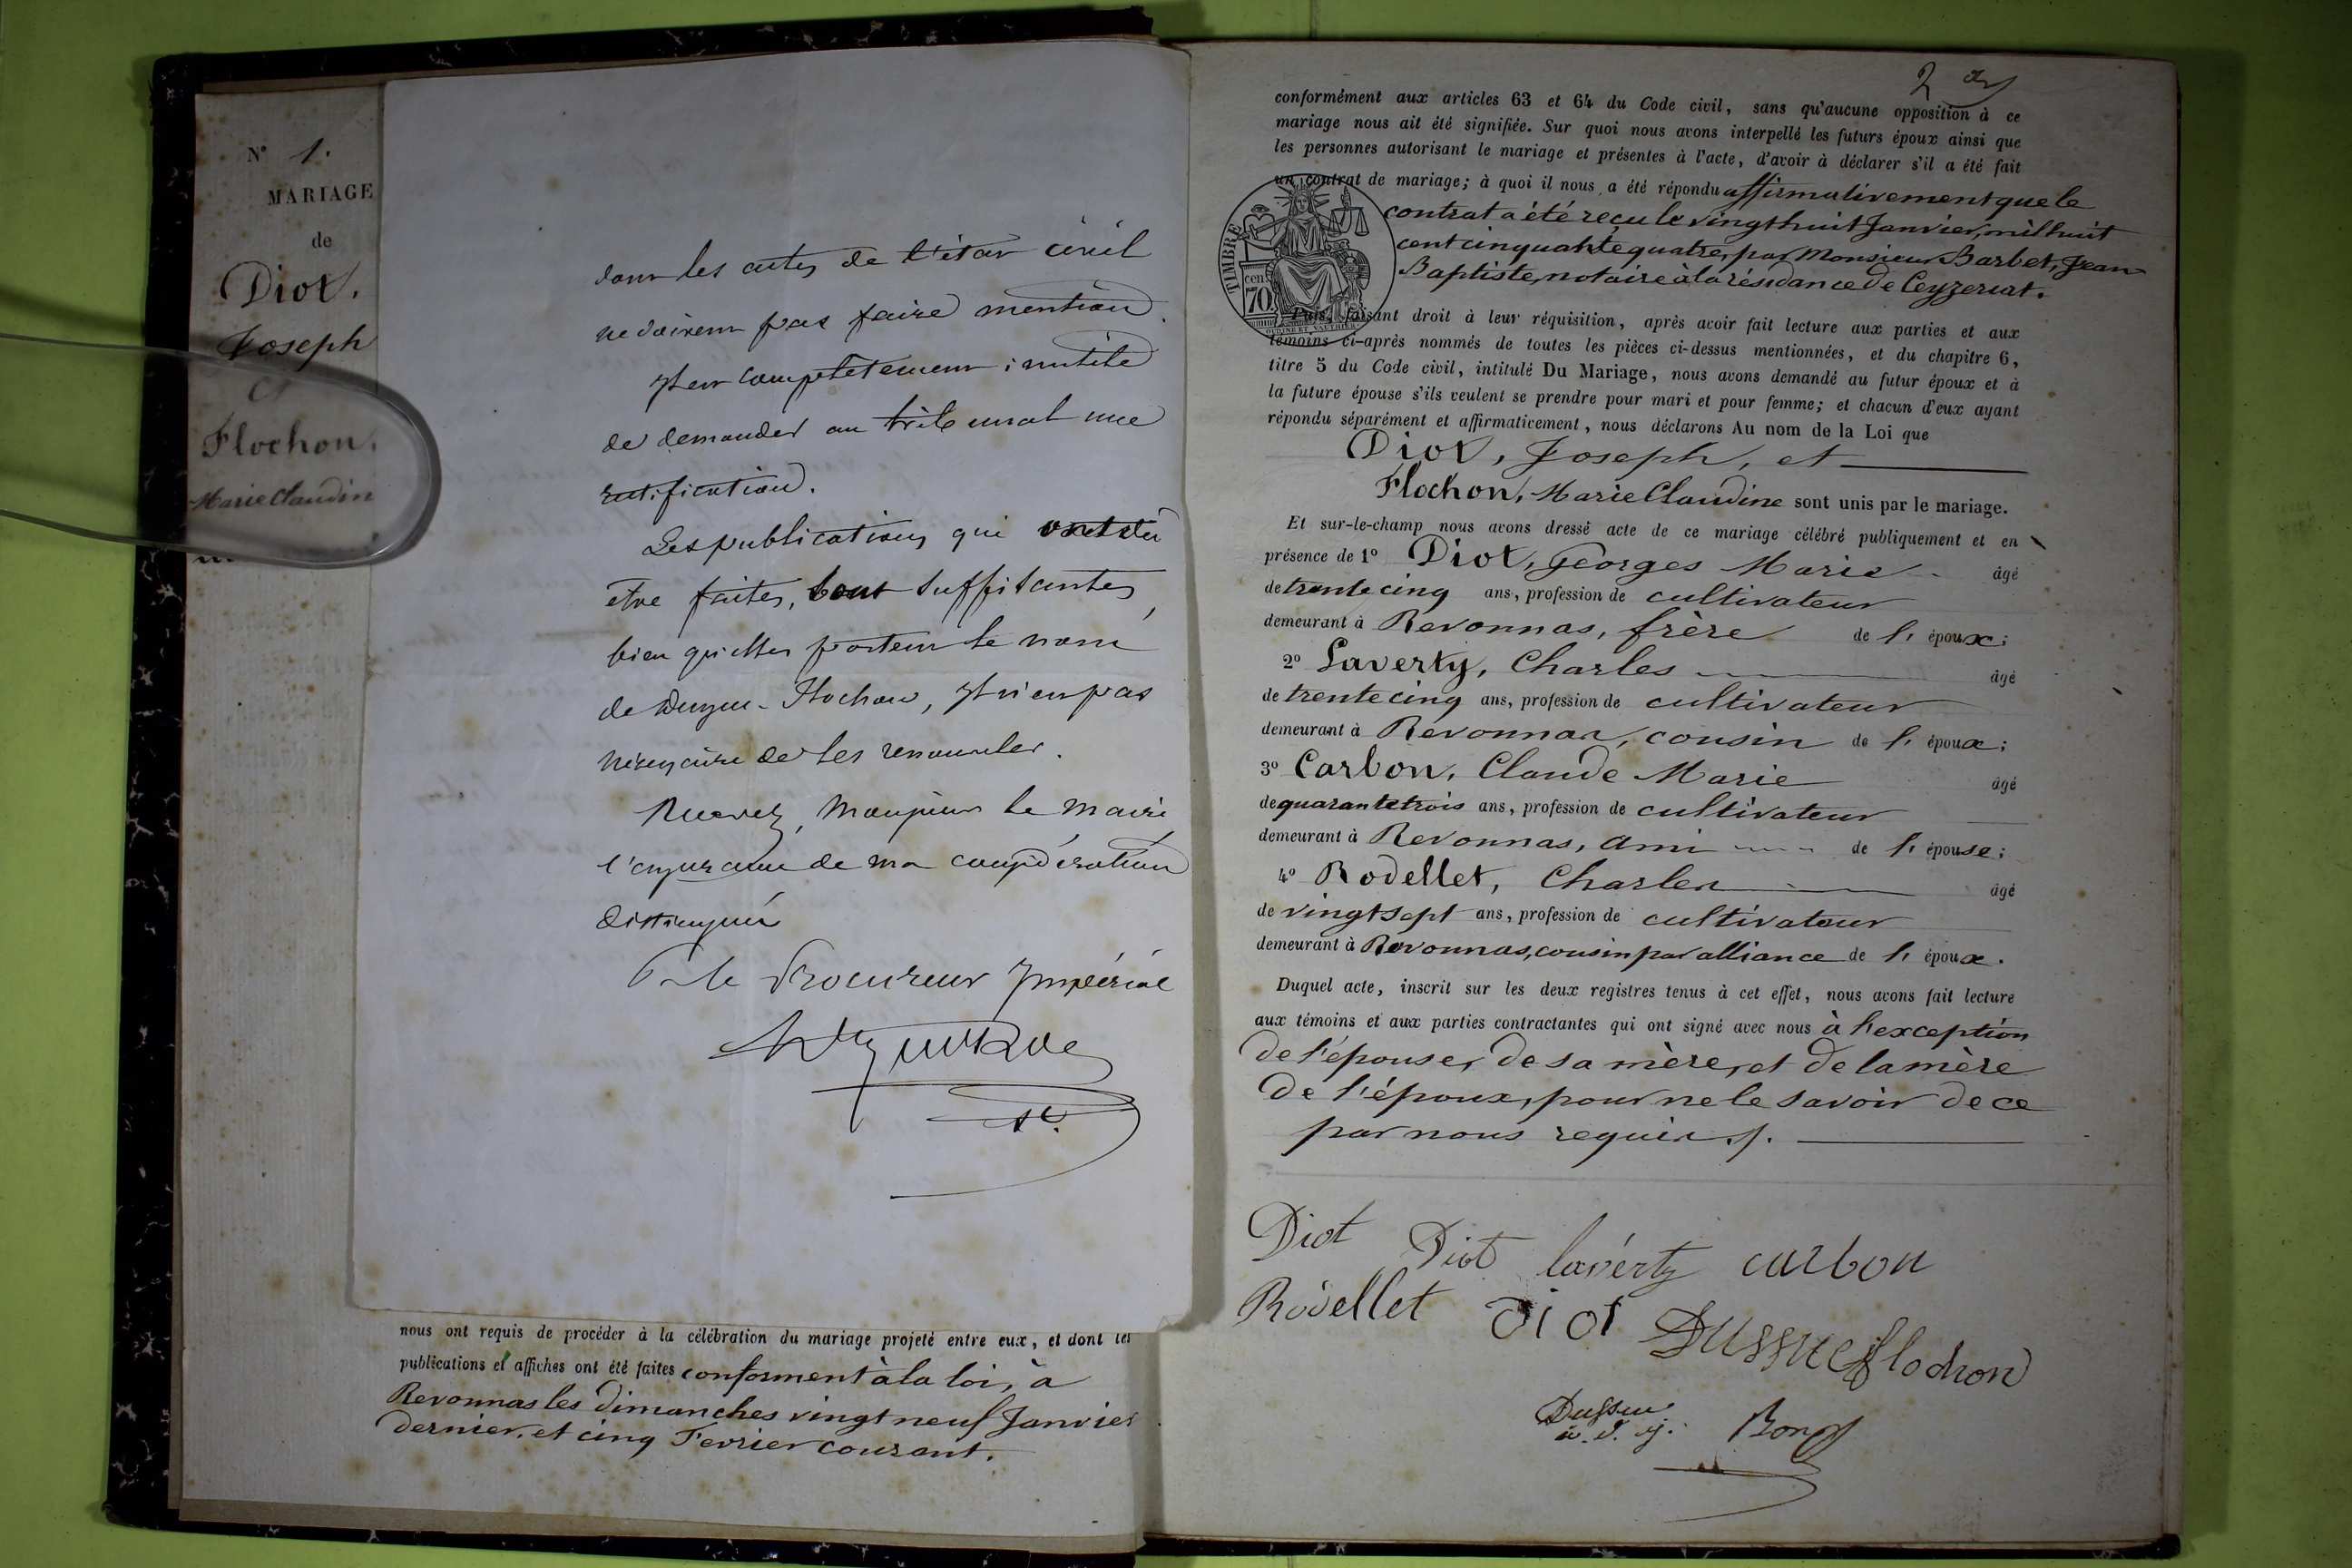 N° 1.
MARIAGE
de
Diot,
Joseph
et
Flochon,
Marie Claudin
dans les actes de l'état civil
ne doivent pas faire mention.
Il est complètement inutile
de demander au tribunal une
rectification.
Les publications qui ont dû
être faites, sont suffisantes,
bien qu'elles portent le nom
de Flochon, il n'est pas
nécessaire de les renouveler.
Recevez, Monsieur le Maire
l'assurance de ma considération
distinguée
P. le Procureur Impérial
nous ont requis de procéder à la célébration du mariage projeté entre eux, et dont les
publications et affiches ont été faites conforment à la loi, à
Revonnas les dimanches vingt neuf Janvier
dernier, et cinq Fevrier courant.
2
conformément aux articles 63 et 64 du Code civil, sans qu'aucune opposition à ce
mariage nous ait été signifiée. Sur quoi nous avons interpellé les futurs époux ainsi que
les personnes autorisant le mariage et présentes à l'acte, d'avoir à déclarer s'il a été fait
un contrat de mariage; à quoi il nous a été répondu affirmativement que le
contrat a été reçu le vingt huit Janvier, mil huit
cent cinquante quatre, par Monsieur Barbet, Jean
Baptiste, notaire à la résidance de Ceyzeriat.
TIMBRE
cen.
70
Puis, faisant droit à leur réquisition, après avoir fait lecture aux parties et aux
témoins ci-après nommés de toutes les pièces ci-dessus mentionnées, et du chapitre 6,
titre 5 du Code civil, intitulé Du Mariage, nous avons demandé au futur époux et à
la future épouse s'ils veulent se prendre pour mari et pour femme; et chacun d'eux ayant
répondu séparément et affirmativement, nous déclarons Au nom de la Loi que
Diot, Joseph, et
Flochon, Marie Claudine sont unis par le mariage.
Et sur-le-champ nous avons dressé acte de ce mariage célébré publiquement et en
présence de 1° Diot, Georges Marie âgé
de trente cinq ans, profession de cultivateur
demeurant à Revonnas, frère de l' époux;
2° Laverty, Charles âgé
de trente cinq ans, profession de cultivateur
demeurant à Revonnas, cousin de l' époux;
3° Carbon, Claude Marie âgé
de quarante trois ans, profession de cultivateur
demeurant à Revonnas, ami de l' épouse;
4° Rodellet, Charles âgé
de vingt sept ans, profession de cultivateur
demeurant à Revonnas, cousin par alliance de l' époux.
Duquel acte, inscrit sur les deux registres tenus à cet effet, nous avons fait lecture
aux témoins et aux parties contractantes qui ont signé avec nous à l'exception
de l'épouse, de sa mère, et de la mère
de l'époux, pour ne le savoir de ce
par nous requis.
Diot Diot lavérty carbon
Rodellet diot Dussuc flochon
Dussuc